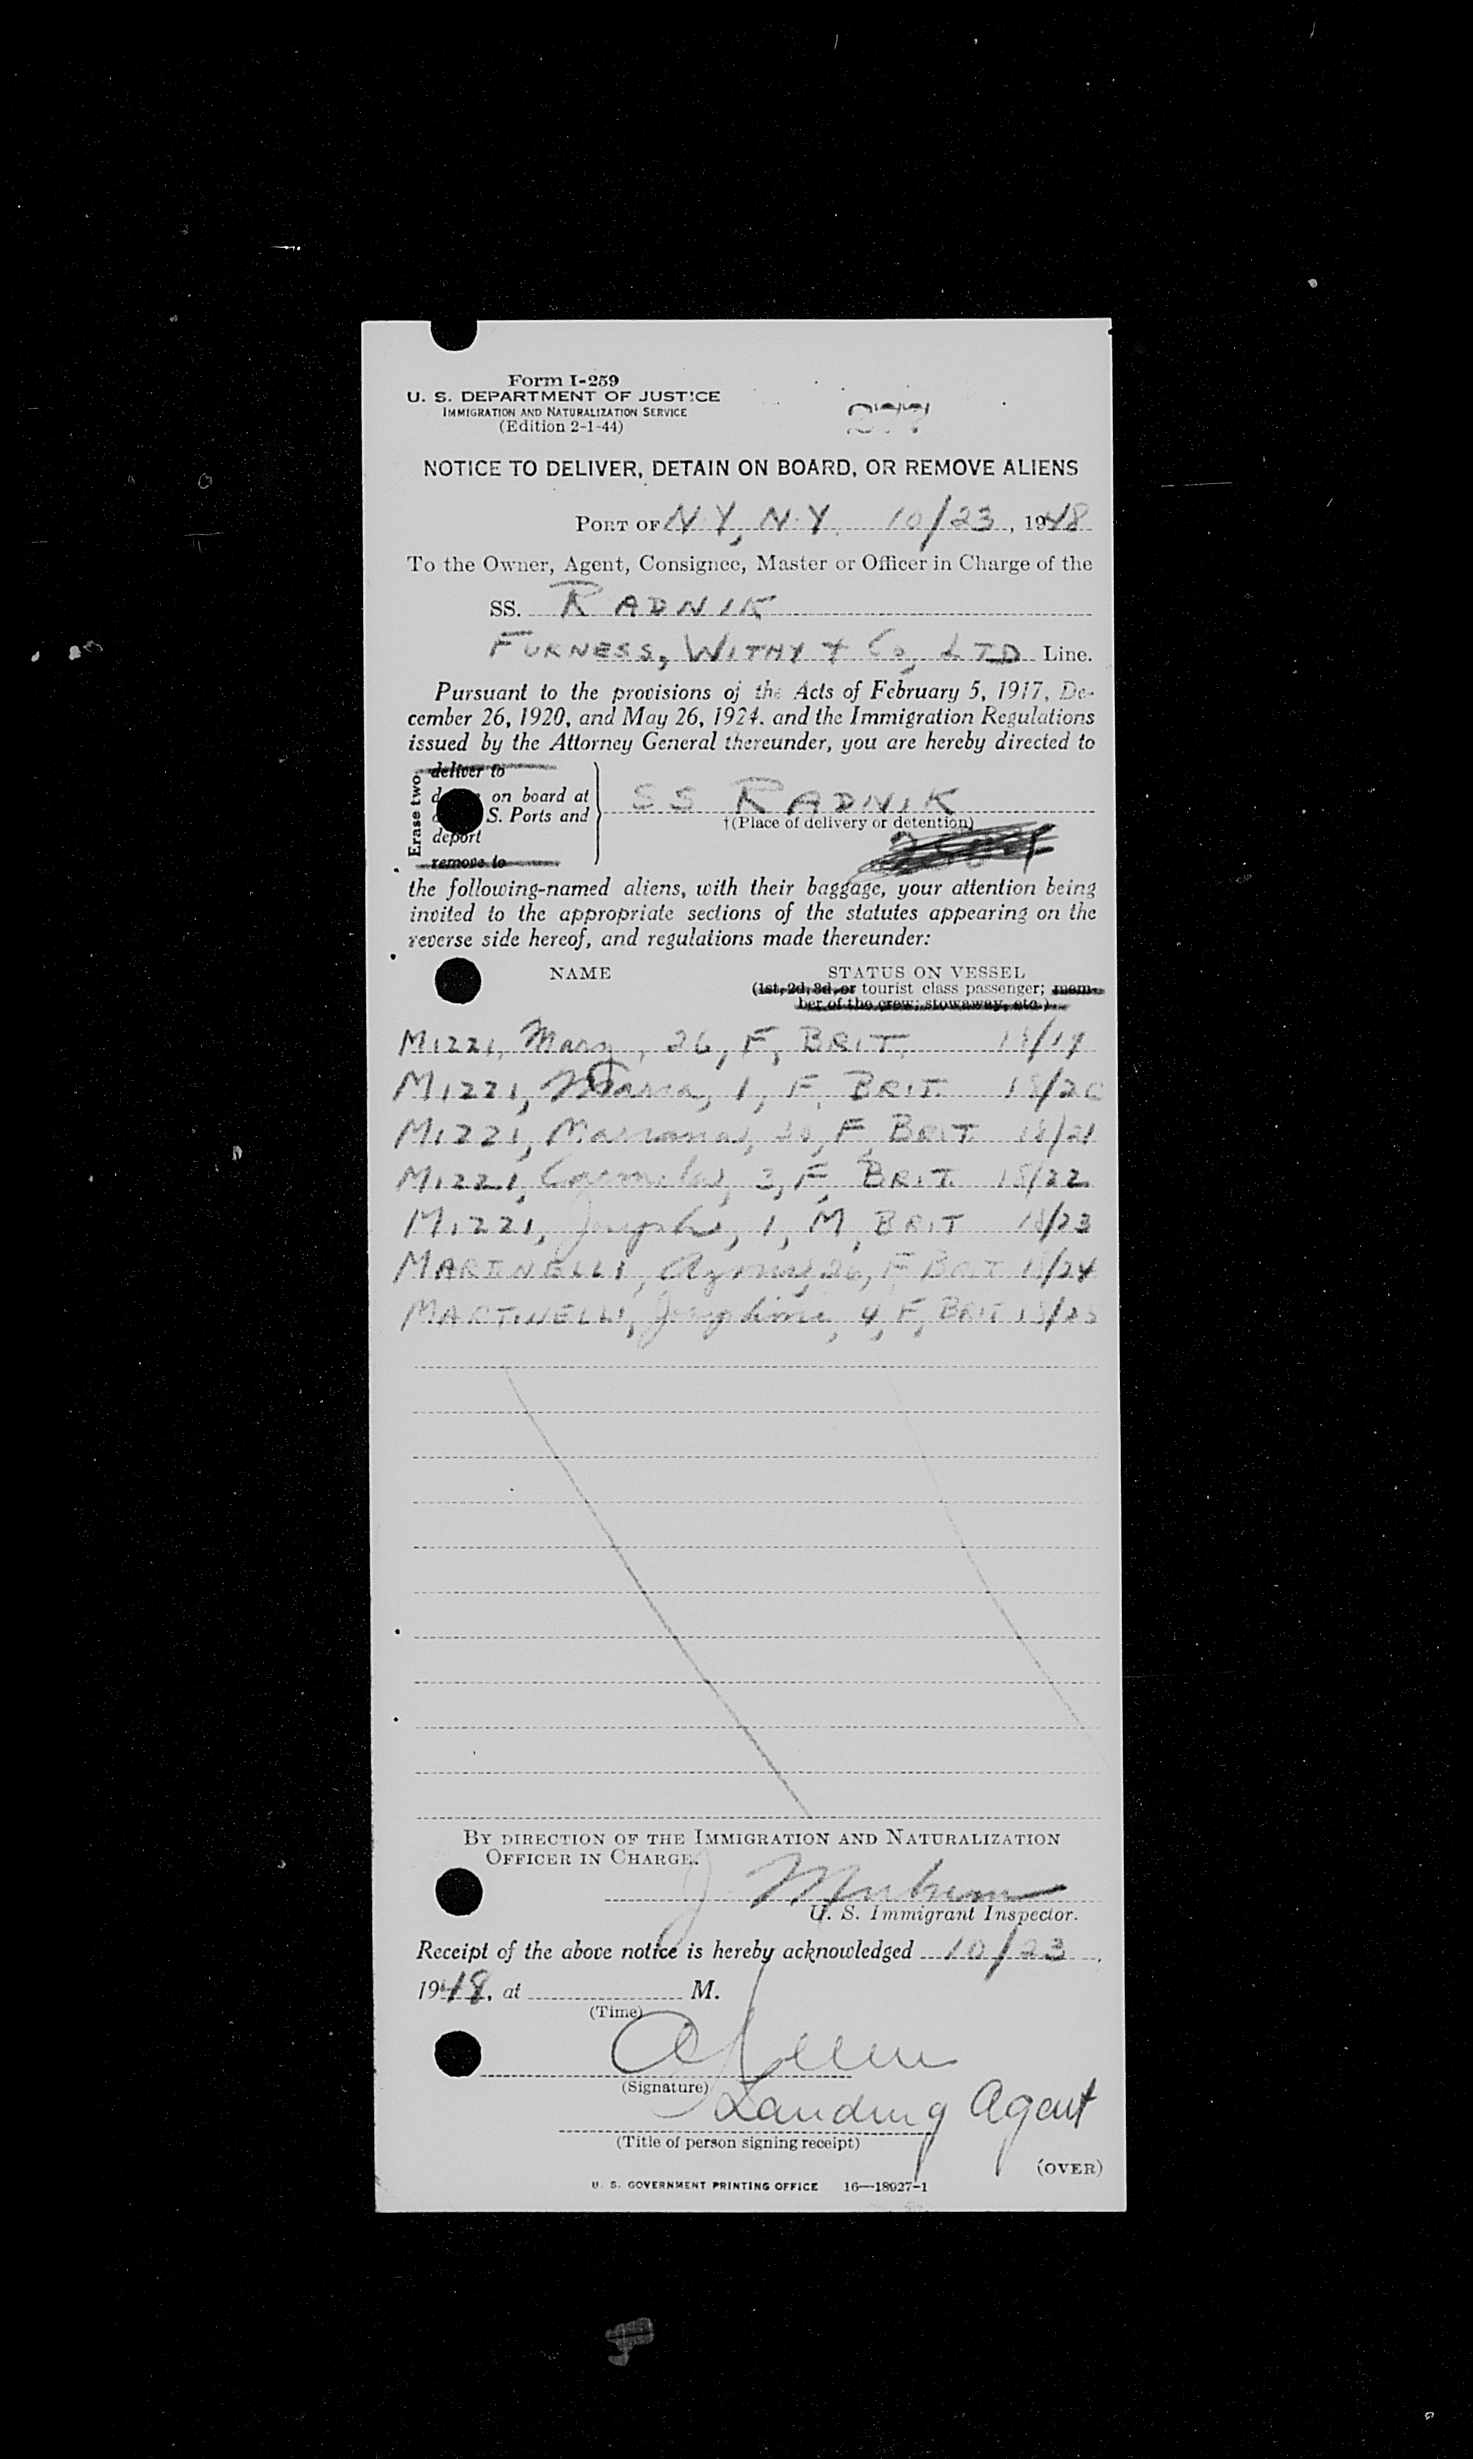 Form I-259
U. S. DEPARTMENT OF JUSTICE
IMMIGRATION AND NATURALIZATION SERVICE
(Edition 2-1-44)
NOTICE TO DELIVER, DETAIN ON BOARD, OR REMOVE ALIENS
PORT OF N.Y, N.Y. 10/23, 1948
To the Owner, Agent, Consignee, Master or Officer in Charge of the
SS. RADNIK
FURNESS, WITHY + Co, LTD Line.
Pursuant to the provisions of the Acts of February 5, 1917, De-
cember 26, 1920, and May 26, 1924, and the Immigration Regulations
issued by the Attorney General thereunder, you are hereby directed to
Erase two
deliver to
on board at
S. Ports and
deport
remove to
SS RADNIK
†(Place of delivery or detention)
the following-named aliens, with their baggage, your attention being
invited to the appropriate sections of the statutes appearing on the
reverse side hereof, and regulations made thereunder:
NAME STATUS ON VESSEL
(1st, 2d, 3d, or tourist class passenger; mem-
ber of the crew; stowaway, etc.)
MIZZI, Mary, 26, F, BRIT. 18/19
MIZZI, Maria, 1, F, BRIT. 18/20
MIZZI, F, BRIT. 18/21
MIZZI, 3, F, BRIT. 18/22
MIZZI, Joseph, 1, M, BRIT 18/23
26, F BRIT 18/24
MARTINELLI, Josephine, 4, F, BRIT 18/25
BY DIRECTION OF THE IMMIGRATION AND NATURALIZATION
OFFICER IN CHARGE.
U. S. Immigrant Inspector.
Receipt of the above notice is hereby acknowledged 10/23,
1948, at M.
(Time)
(Signature)
Landing Agent
(Title of person signing receipt)
(OVER)
U. S. GOVERNMENT PRINTING OFFICE 16—18927-1